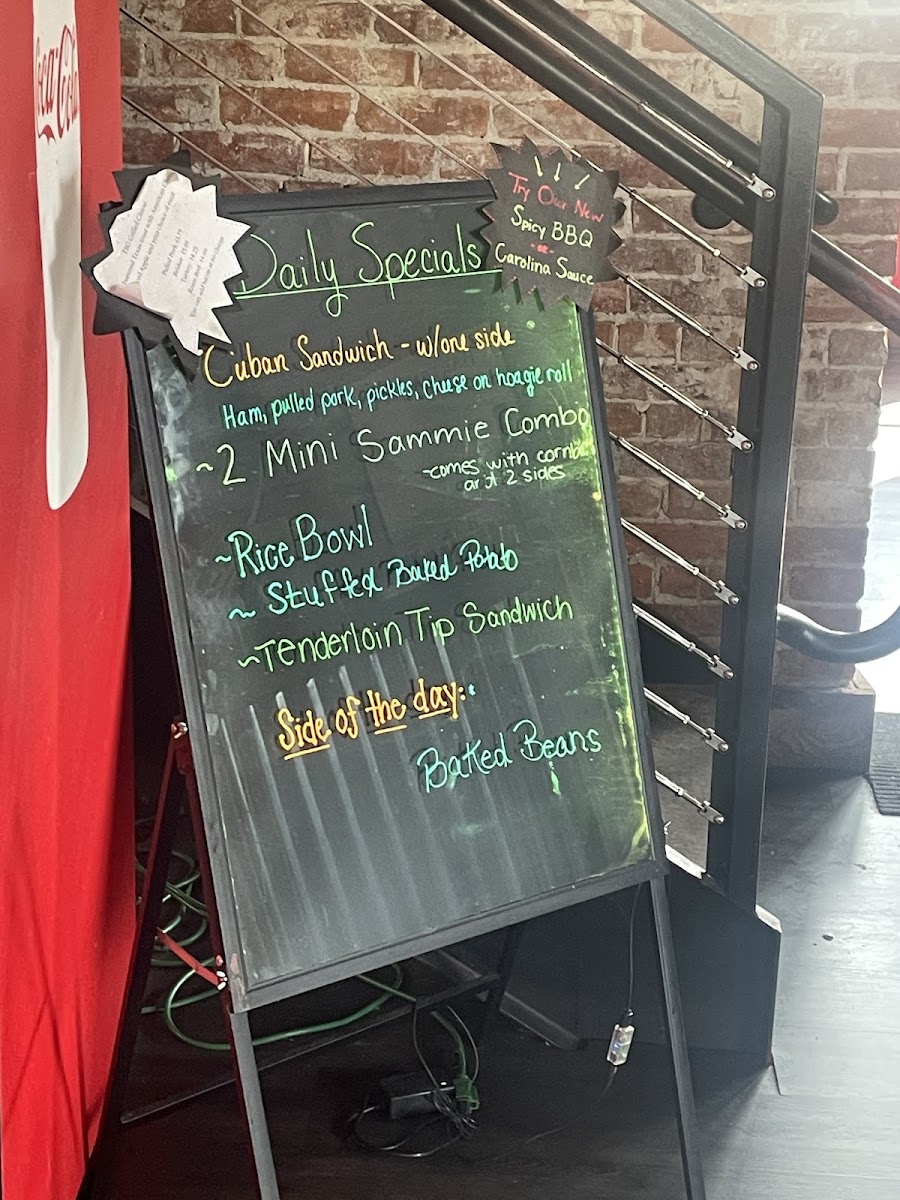 Coca-Cola
TBG Grilled Cheese
Pulled Pork
Turkey
Try Our New
Spicy BBQ
-or-
Carolina Sauce
Daily Specials
Cuban Sandwich - w/one side
Ham, pulled pork, pickles, cheese on hoagie roll
~2 Mini Sammie Combo
~comes with cornb
and 2 sides
~Rice Bowl
~ Stuffed Baked Potato
~Tenderloin Tip Sandwich
Side of the day:
Baked Beans